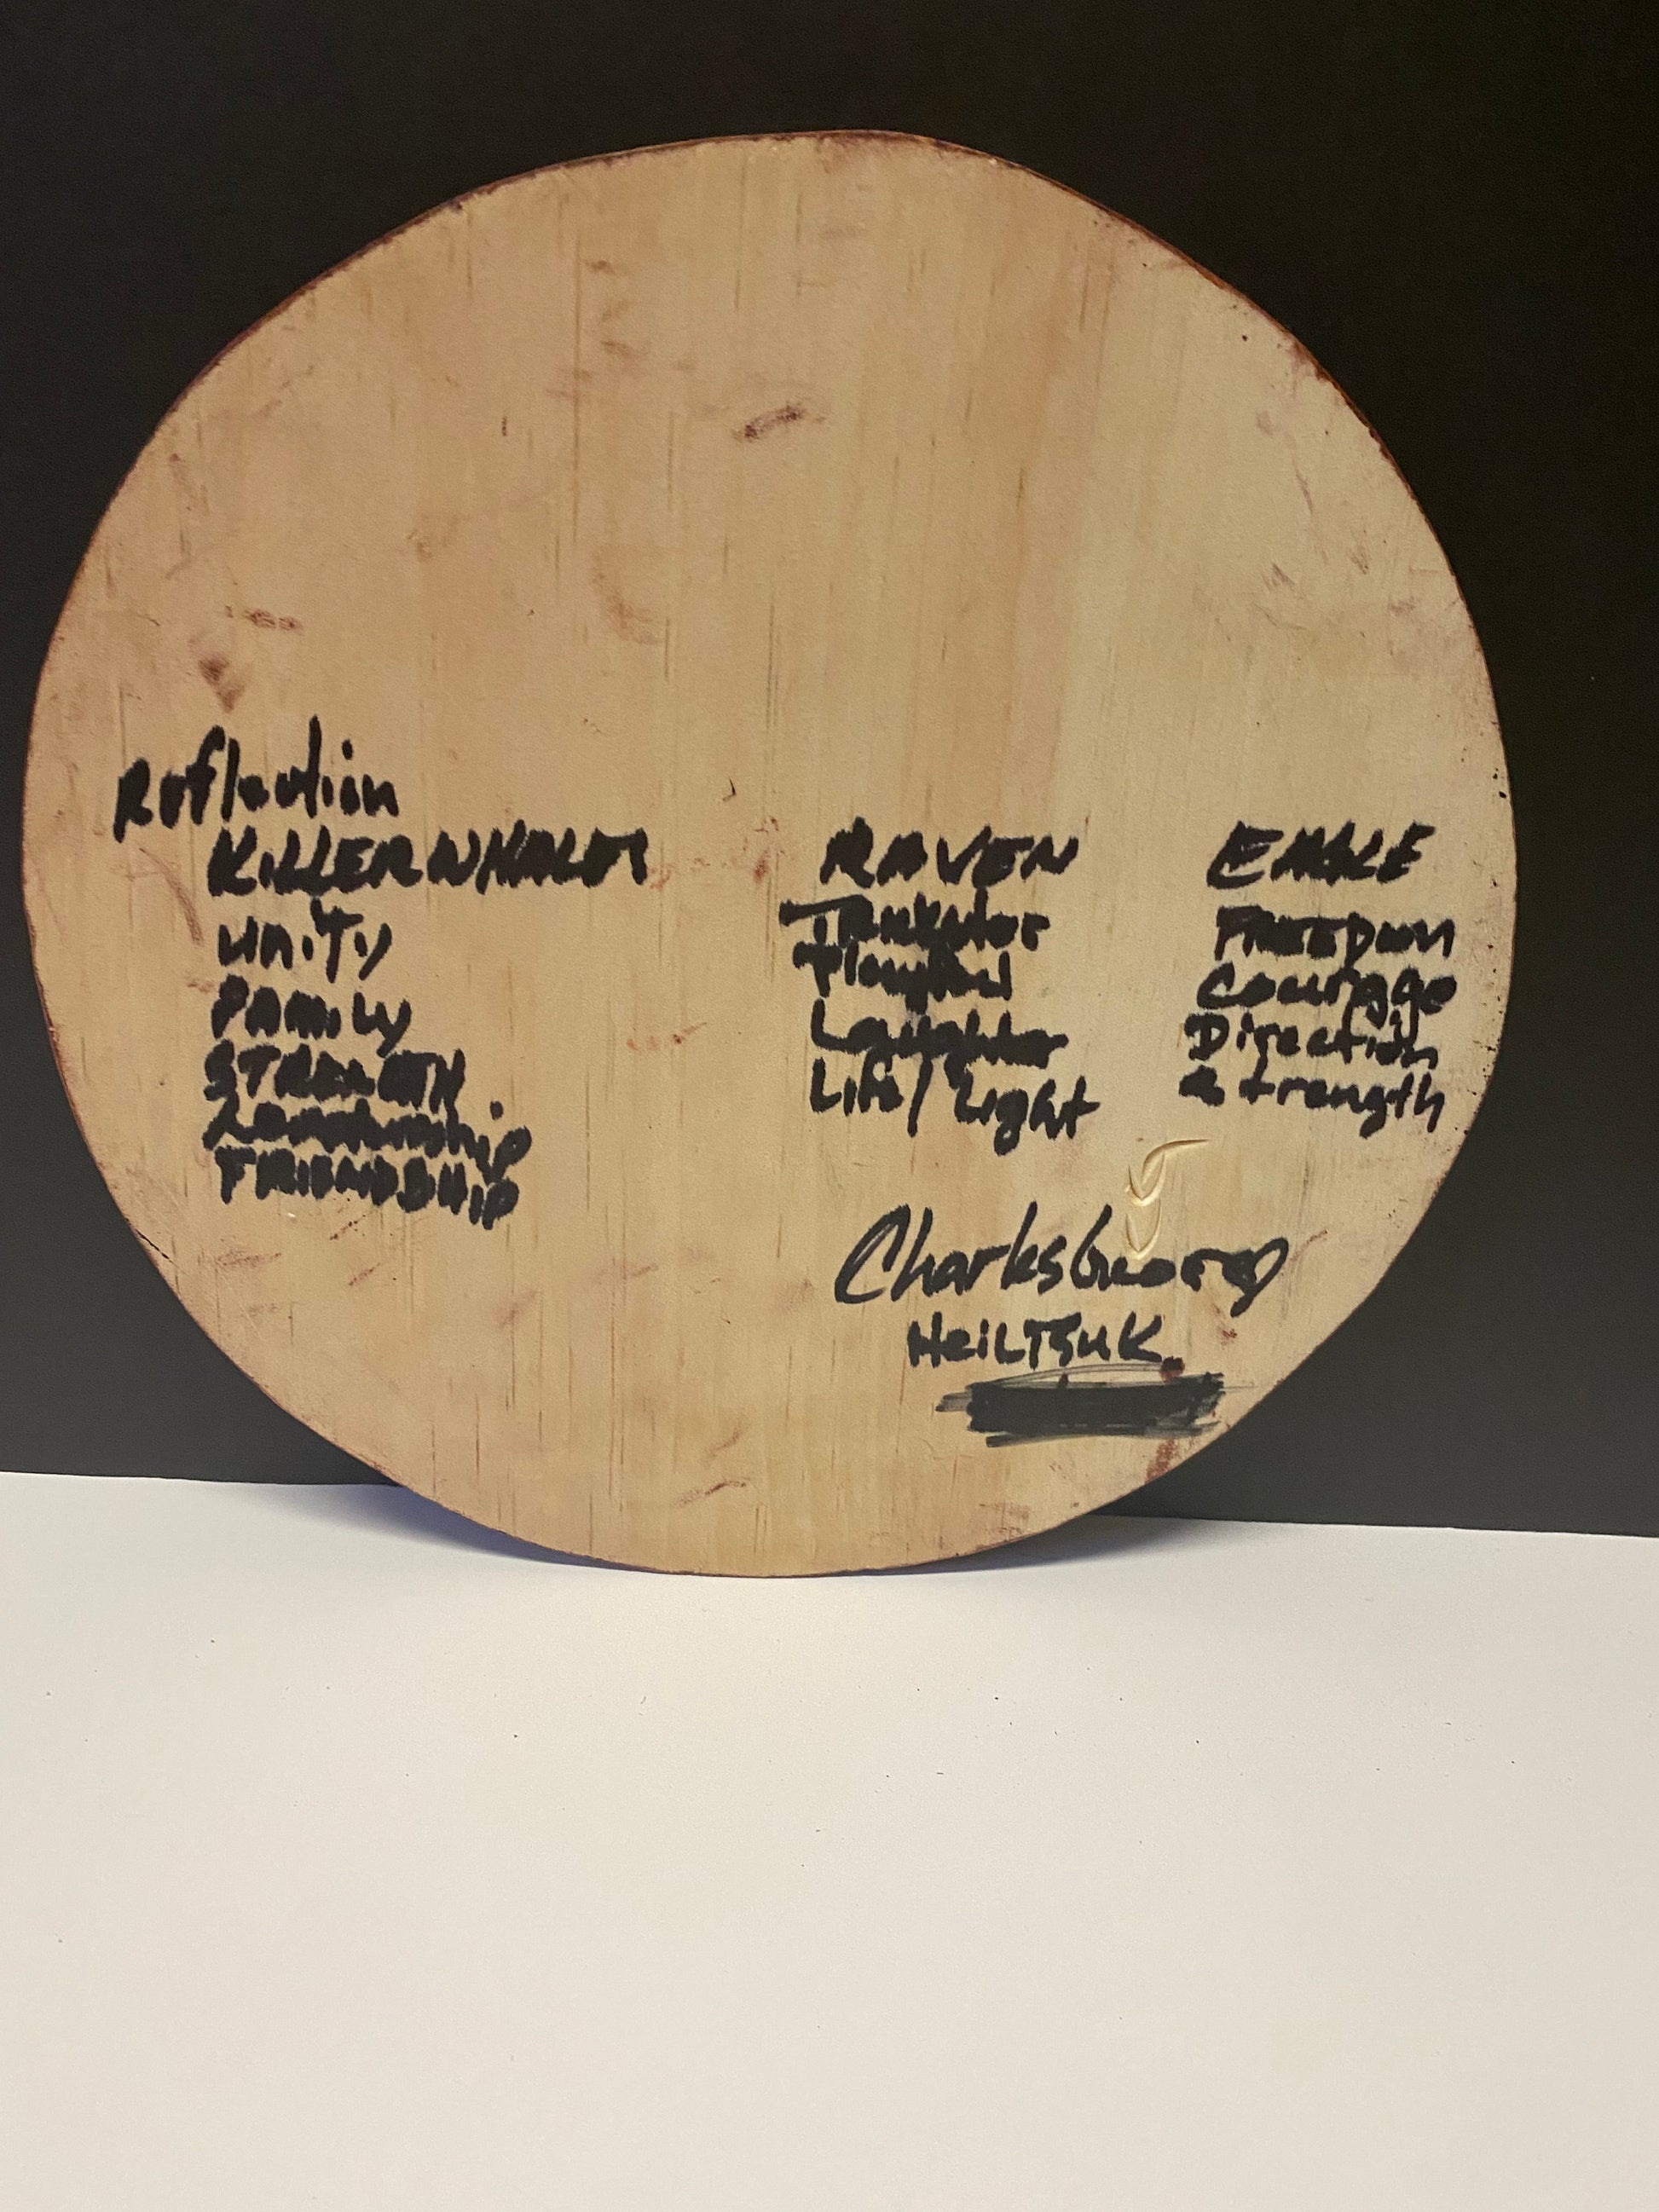 Reflection
KILLERWHALES RAVEN EAGLE
UNITY
FAMILY
STRENGTH
FRIENDSHIP
Playful
Laughter
Life/Light
FREEDOM
Courage
Direction
& strength
Charles
HEILTSUK